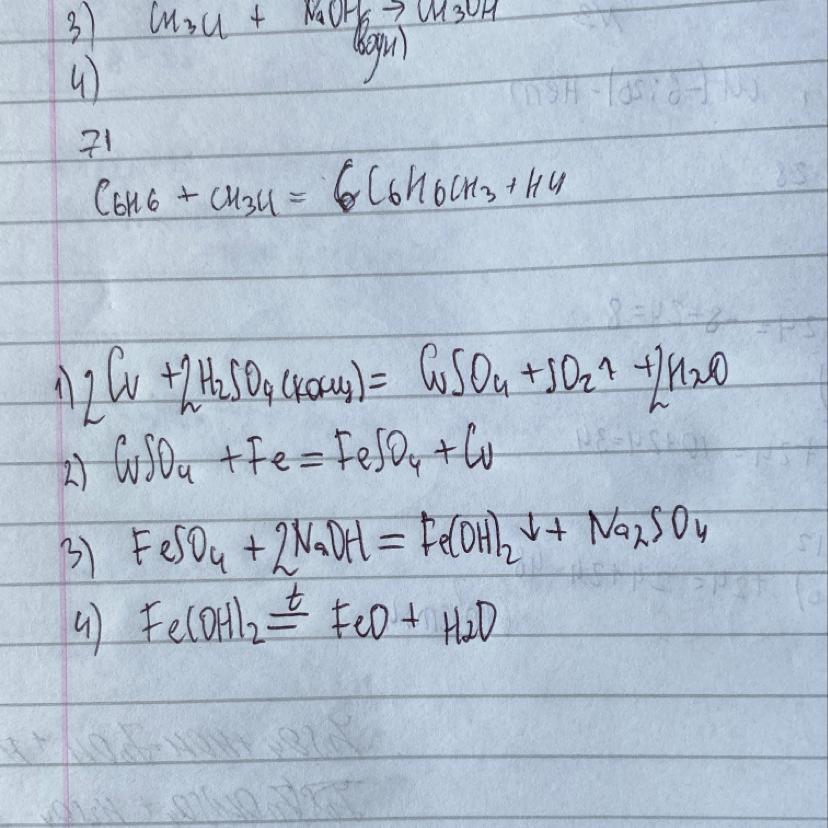 3) CH3Cl + NaOH → CH3OH
(водн)
4)
71
C6H6 + CH3Cl = 6C6H6CH3 + HCl
1) 2Cu + 2H2SO4 (конц) = CuSO4 + SO2↑ + 2H2O
2) CuSO4 + Fe = FeSO4 + Cu
3) FeSO4 + 2NaOH = Fe(OH)2↓ + Na2SO4
4) Fe(OH)2 =t= FeO + H2O